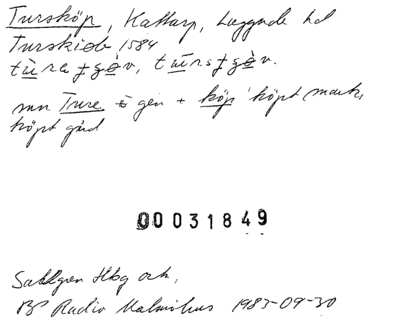 Tursköp, Kattarp, Luggude hd
Turskiöb 1584
mn Ture i gen + köp 'köpt mark,
köpt gård
00031849
Sahlgren Hbg ark.
BP Radio Malmöhus 1983-09-30